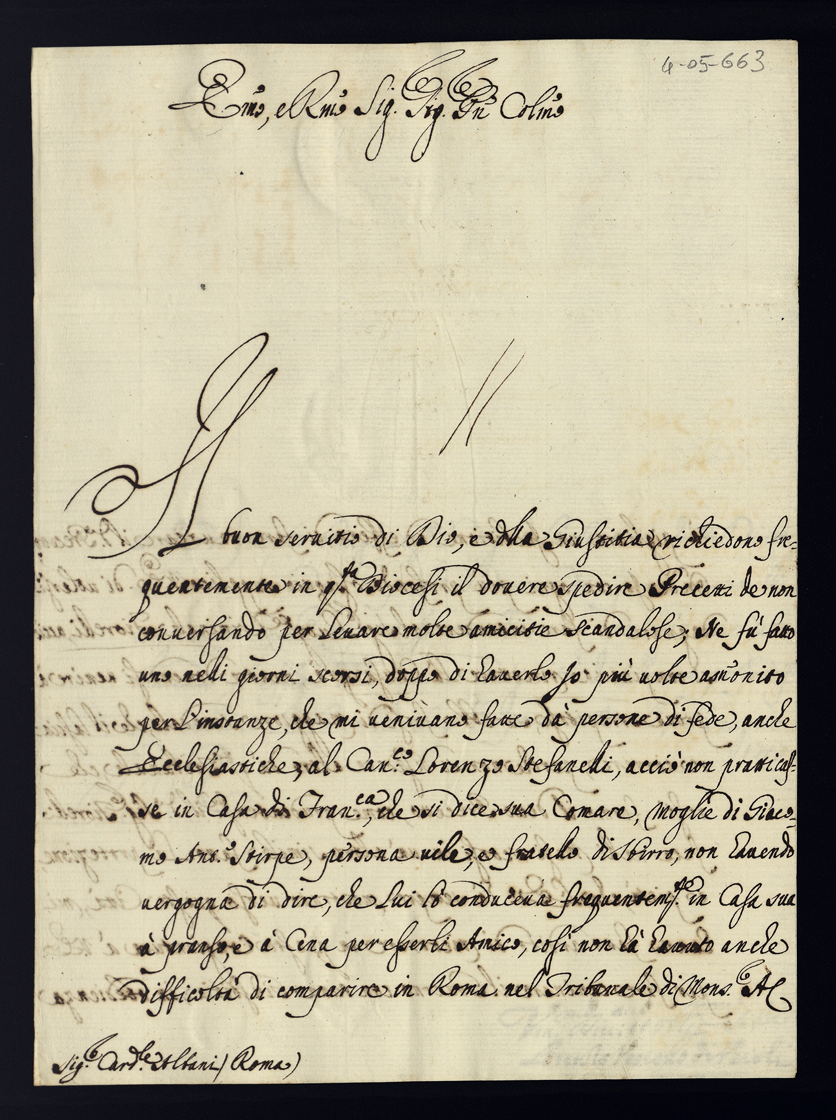 4-05-663
Em̃o, e Rm̃o Sig. Sig. Pñ Colm̃o
Il buon servitio di Dio, e della Giustitia richiedono fre-
quentemente in q.sta Diocesi il dovere spedire Precetti de non
conversando per levare molte amicitie scandalose; Ne fù fatto
uno nelli giorni scorsi, doppo di haverlo Io più volte am̃onito
per l'instanze, che mi venivano fatte dà persone di fede, anche
Ecclesiastiche, al Can.co Lorenzo Stefanelli, acciò non pratticas-
se in Casa di Fran.ca, che si dice sua Comare, moglie di Giaco-
mo Ant.o Stirpe, persona vile, e fratello di Sbirro, non havendo
vergogna di dire, che lui lo conduceva frequentem.te in Casa sua
à pranso, e à Cena per esserli Amico, così non hà havuto anche
difficoltà di comparire in Roma nel Tribunale di Mons.r A C
Sig.r Card.le Albani (Roma)